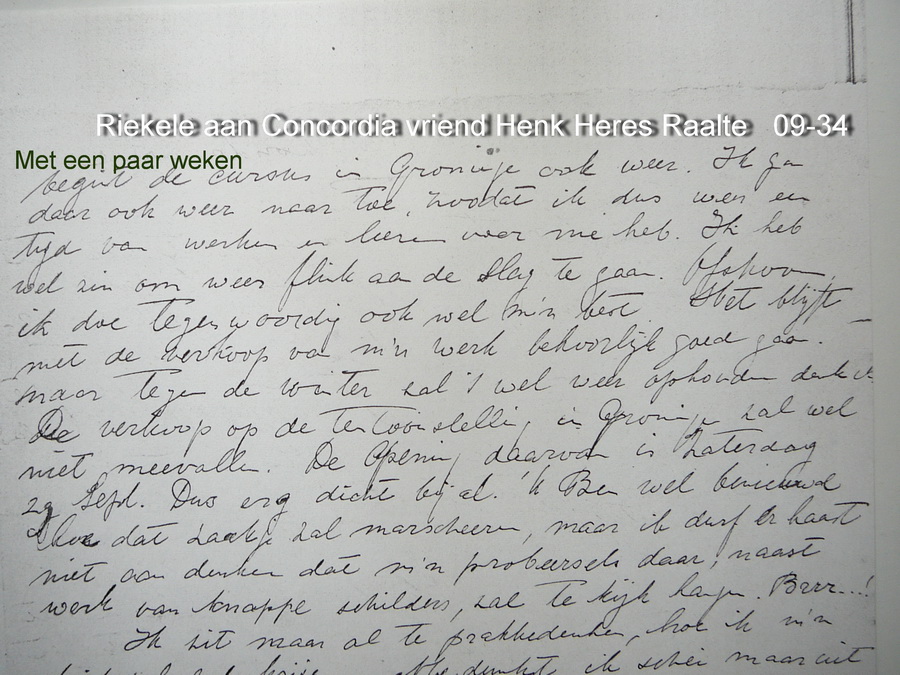 Riekele aan Concordia vriend Henk Heres Raalte 09-34
Met een paar weken
begint de cursus in Groninge ook weer. Ik ga
daar ook weer naar toe, zoodat ik dus weer een
tijd van werken en leeren voor me heb. Ik heb
wel zin om weer flink aan de slag te gaan. Ofschoon,
ik doe tegenwoordig ook wel m'n best. Het blijft
met de verkoop van m'n werk behoorlijk goed gaan.
maar tegen de winter zal 't wel weer ophouden denk ik
De verkoop op de tentoonstelling in Groninge zal wel
niet meevallen. De Opening daarvan is Zaterdag
29 Sept. Dus erg dicht bij al. 'k Ben wel benieuwd
hoe dat zaakje zal marscheeren, maar ik durf er haast
niet aan denken dat m'n probeersels daar, naast
werk van knappe schilders, zal te kijk hangen. Brrr...!
Ik zit maar al te prakkedenken, hoe ik m'n
ik schei maar uit